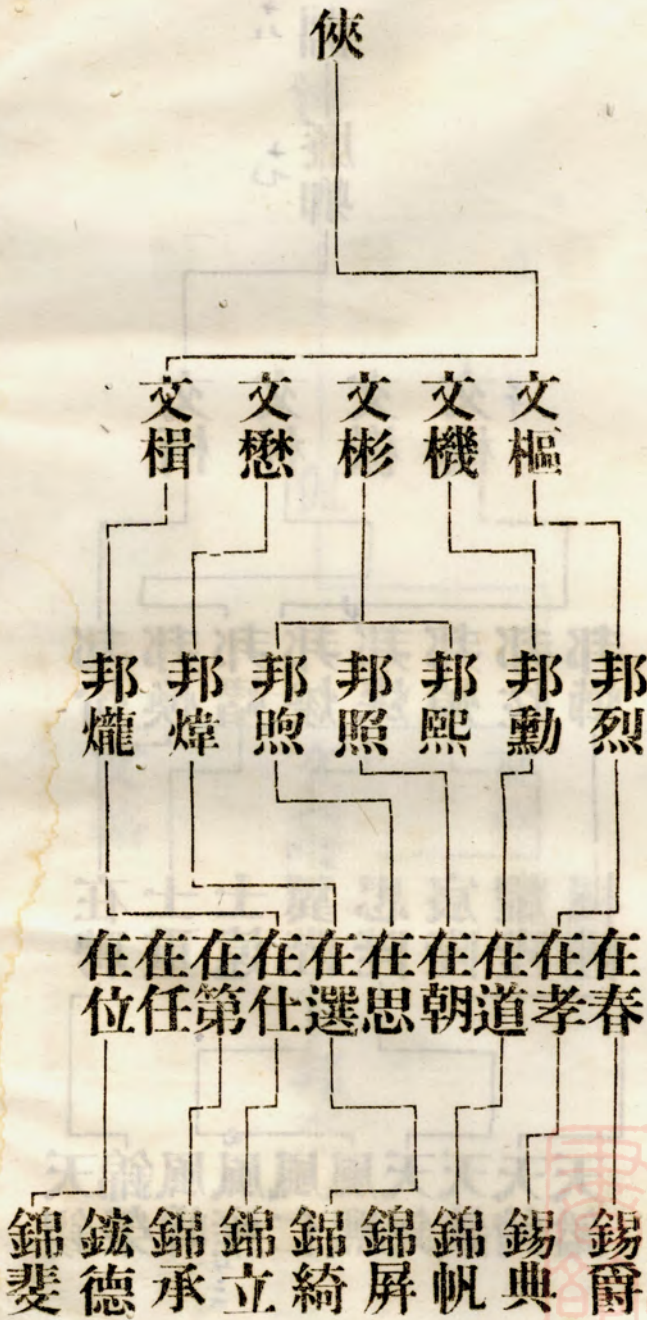 俠
文樞
文機
文彬
文懋
文楫
邦烈
邦勳
邦熙
邦照
邦煦
邦煒
邦爖
在春
在孝
在道
在朝
在思
在選
在仕
在第
在任
在位
錫爵
錫典
錦帆
錦屏
錦綺
錦立
錦承
鋐德
錦斐